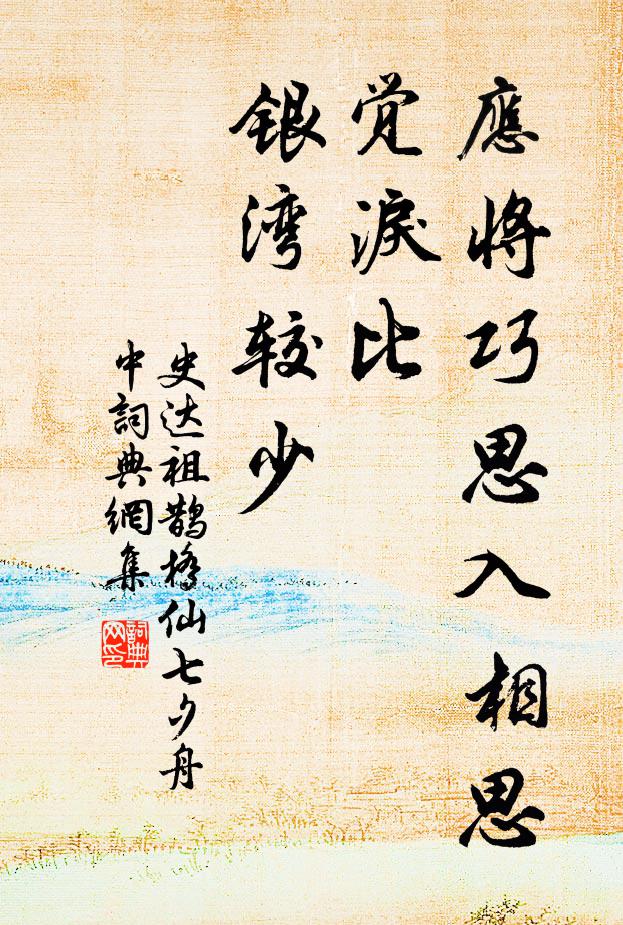 應將巧思入相思
觉淚比
銀湾较少
史达祖鹊橋仙七夕舟
中詞典網集
詞典
网印